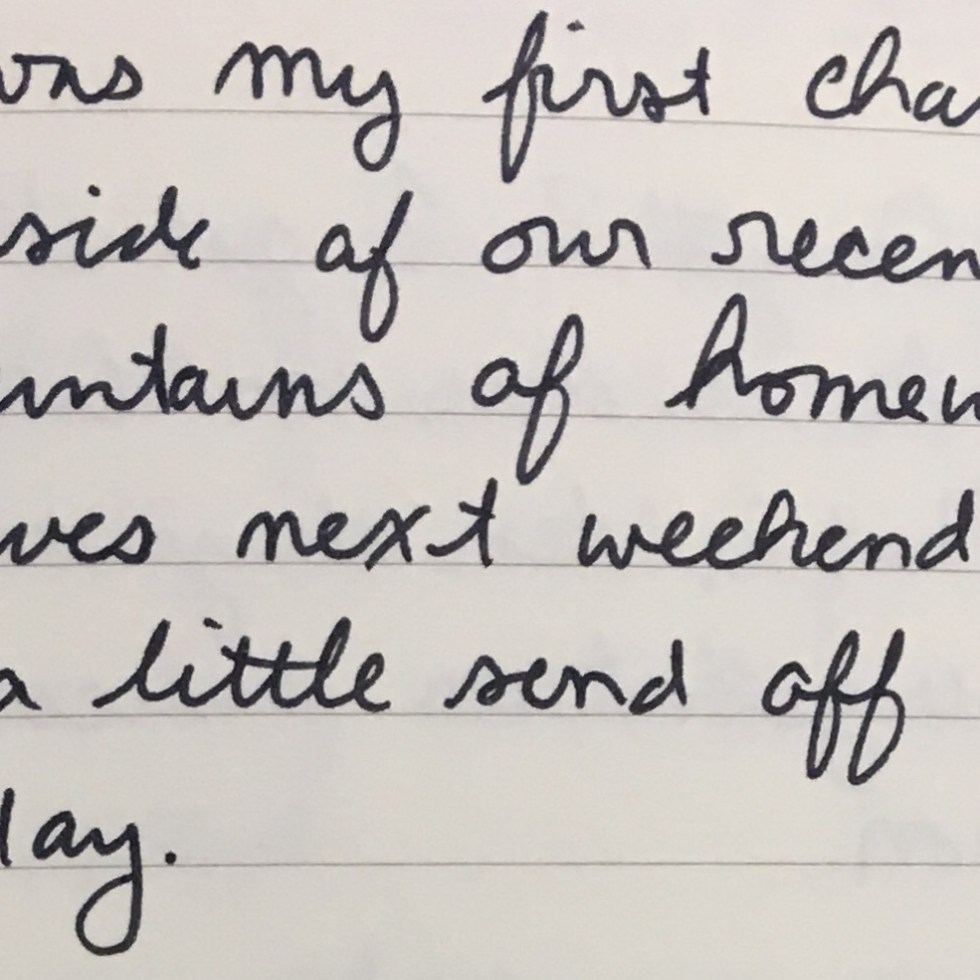 was my first cha
side of our recen
untains of homew
ves next weekend
a little send off
day.